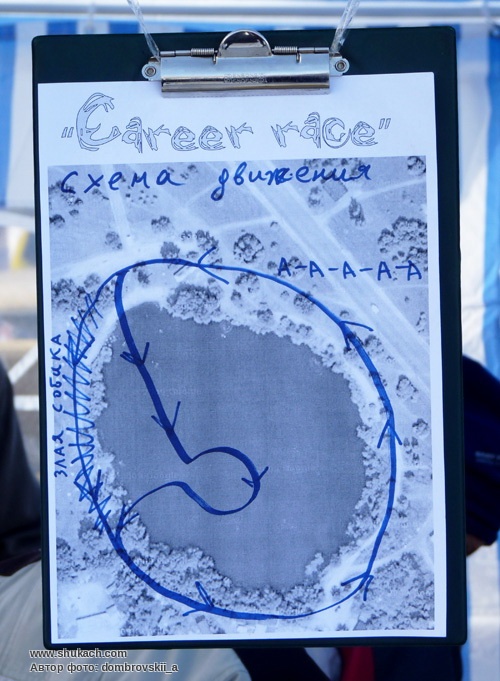 "Career race"
Схема движения
А-А-А-А-А
ЗЛАЯ СОБИКА
www.shukach.com
Автор фото: dombrovskii_a